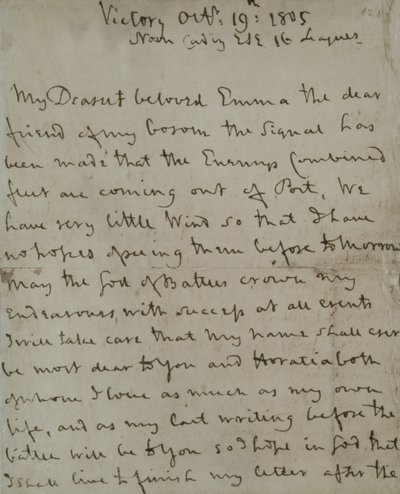 Victory Octr: 19th: 1805
Noon Cadiz ESE 16 Leagues
My Dearest beloved Emma the dear
friend of my bosom the Signal has
been made that the Enemys Combined
fleet are coming out of Port, We
have very little Wind so that I have
no hopes of seeing them before tomorrow
May the God of Battles crown my
Endeavours with success at all events
I will take care that my name shall ever
be most dear to You and Horatia both
of whom I love as much as my own
life, and as my last writing before the
battle will be to You so I hope in God that
I shall live to finish my letter after the